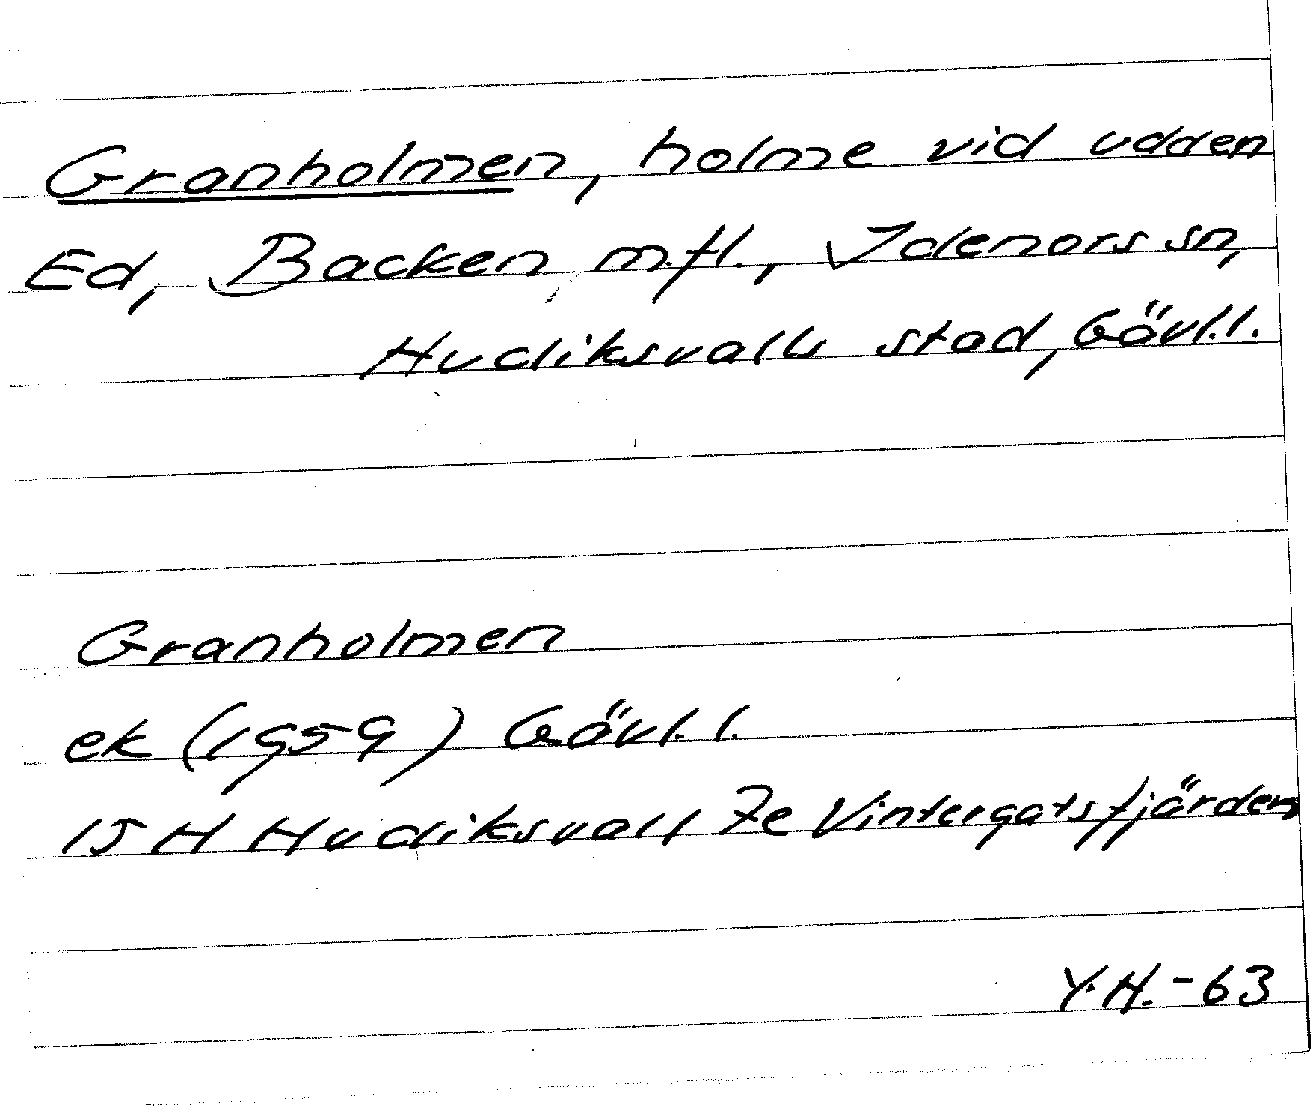 Granholmen, holme vid udden
Ed, Backen m.fl., Idenors sn,
Hudiksvalls stad, Gävl.l.
Granholmen
ek (1959) Gävl.l.
15 H Hudiksvall 7e Vintergatsfjärden
Y.H.-63